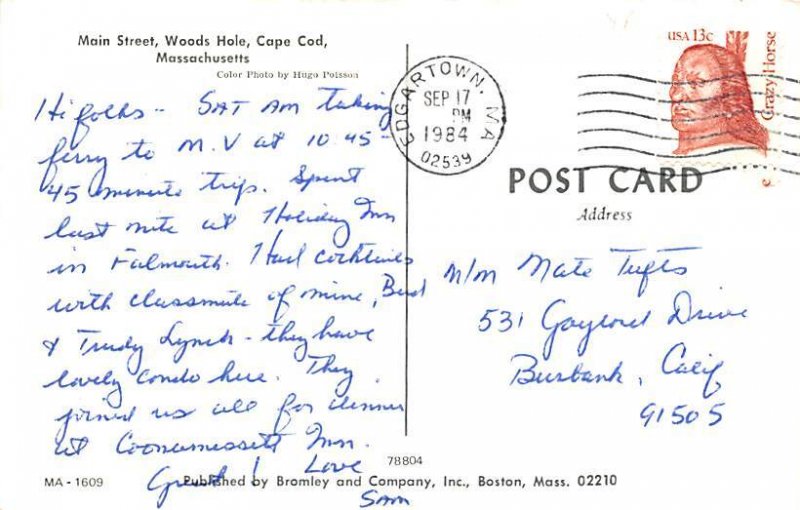 Main Street, Woods Hole, Cape Cod,
Massachusetts
Color Photo by Hugo Poisson
Hi folks - SAT AM taking
ferry to M.V at 10 45 -
45 minute trip. Spent
last nite at Holiday Inn
in Falmouth. Had cocktails
with classmate of mine, Bud
& Trudy Lynch - they have
lovely condo here. They
joined us all for dinner
at Coonamessett Inn.
Great! Love
Sam
EDGARTOWN, MA
SEP 17
PM
1984
02539
USA 13c
Crazy Horse
POST CARD
Address
M/M Nate Tufts
531 Gaylord Drive
Burbank, Calif
91505
78804
MA - 1609
Published by Bromley and Company, Inc., Boston, Mass. 02210